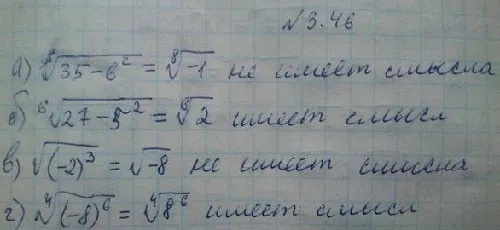 №3.46
а) ⁸√35-6² = ⁸√-1 не имеет смысла
б) ⁶√27-5² = ⁶√2 имеет смысл
в) √(-2)³ = √-8 не имеет смысла
г) ⁴√(-8)⁶ = ⁴√8⁶ имеет смысл